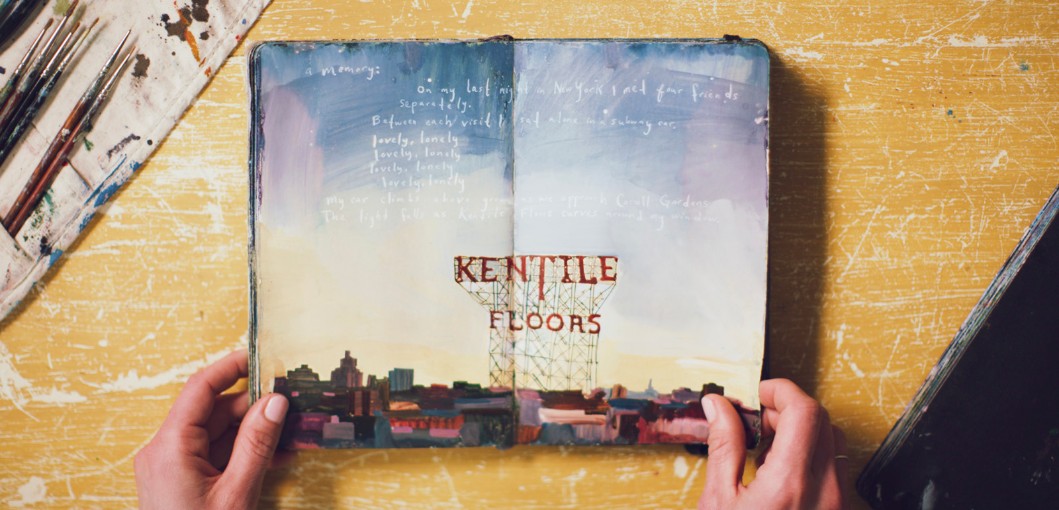 a memory:
on my last night in New York I met four friends
separately.
Between each visit I sat alone in a subway car.
lovely, lonely
lovely, lonely
lovely, lonely
lovely, lonely
my car climbs above ground as we approach Carroll Gardens
The light falls as Kentile Floors curves around my window.
KENTILE
FLOORS